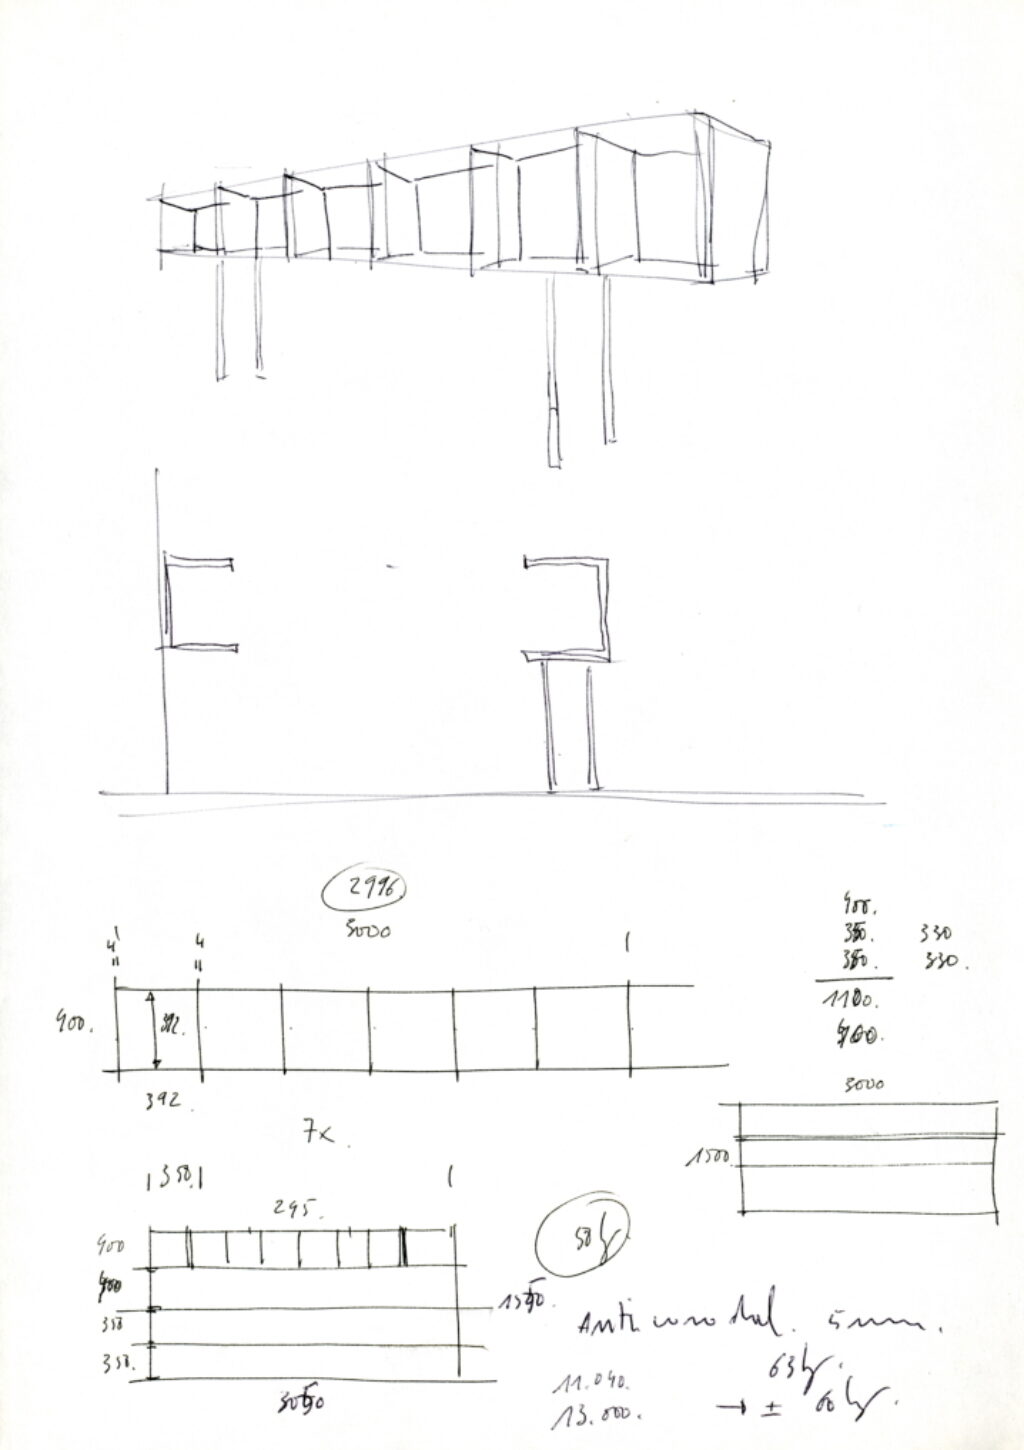 2996
3000
4
4
400.
392.
392
7x
400.
350. 330
350. 330.
1100.
400.
3000
1500.
350.
295.
50 kg
400
400
350
350.
1500.
3050
Anticorodal. 5 mm.
63 kg.
11.040.
13.000. → ± 60 kg.